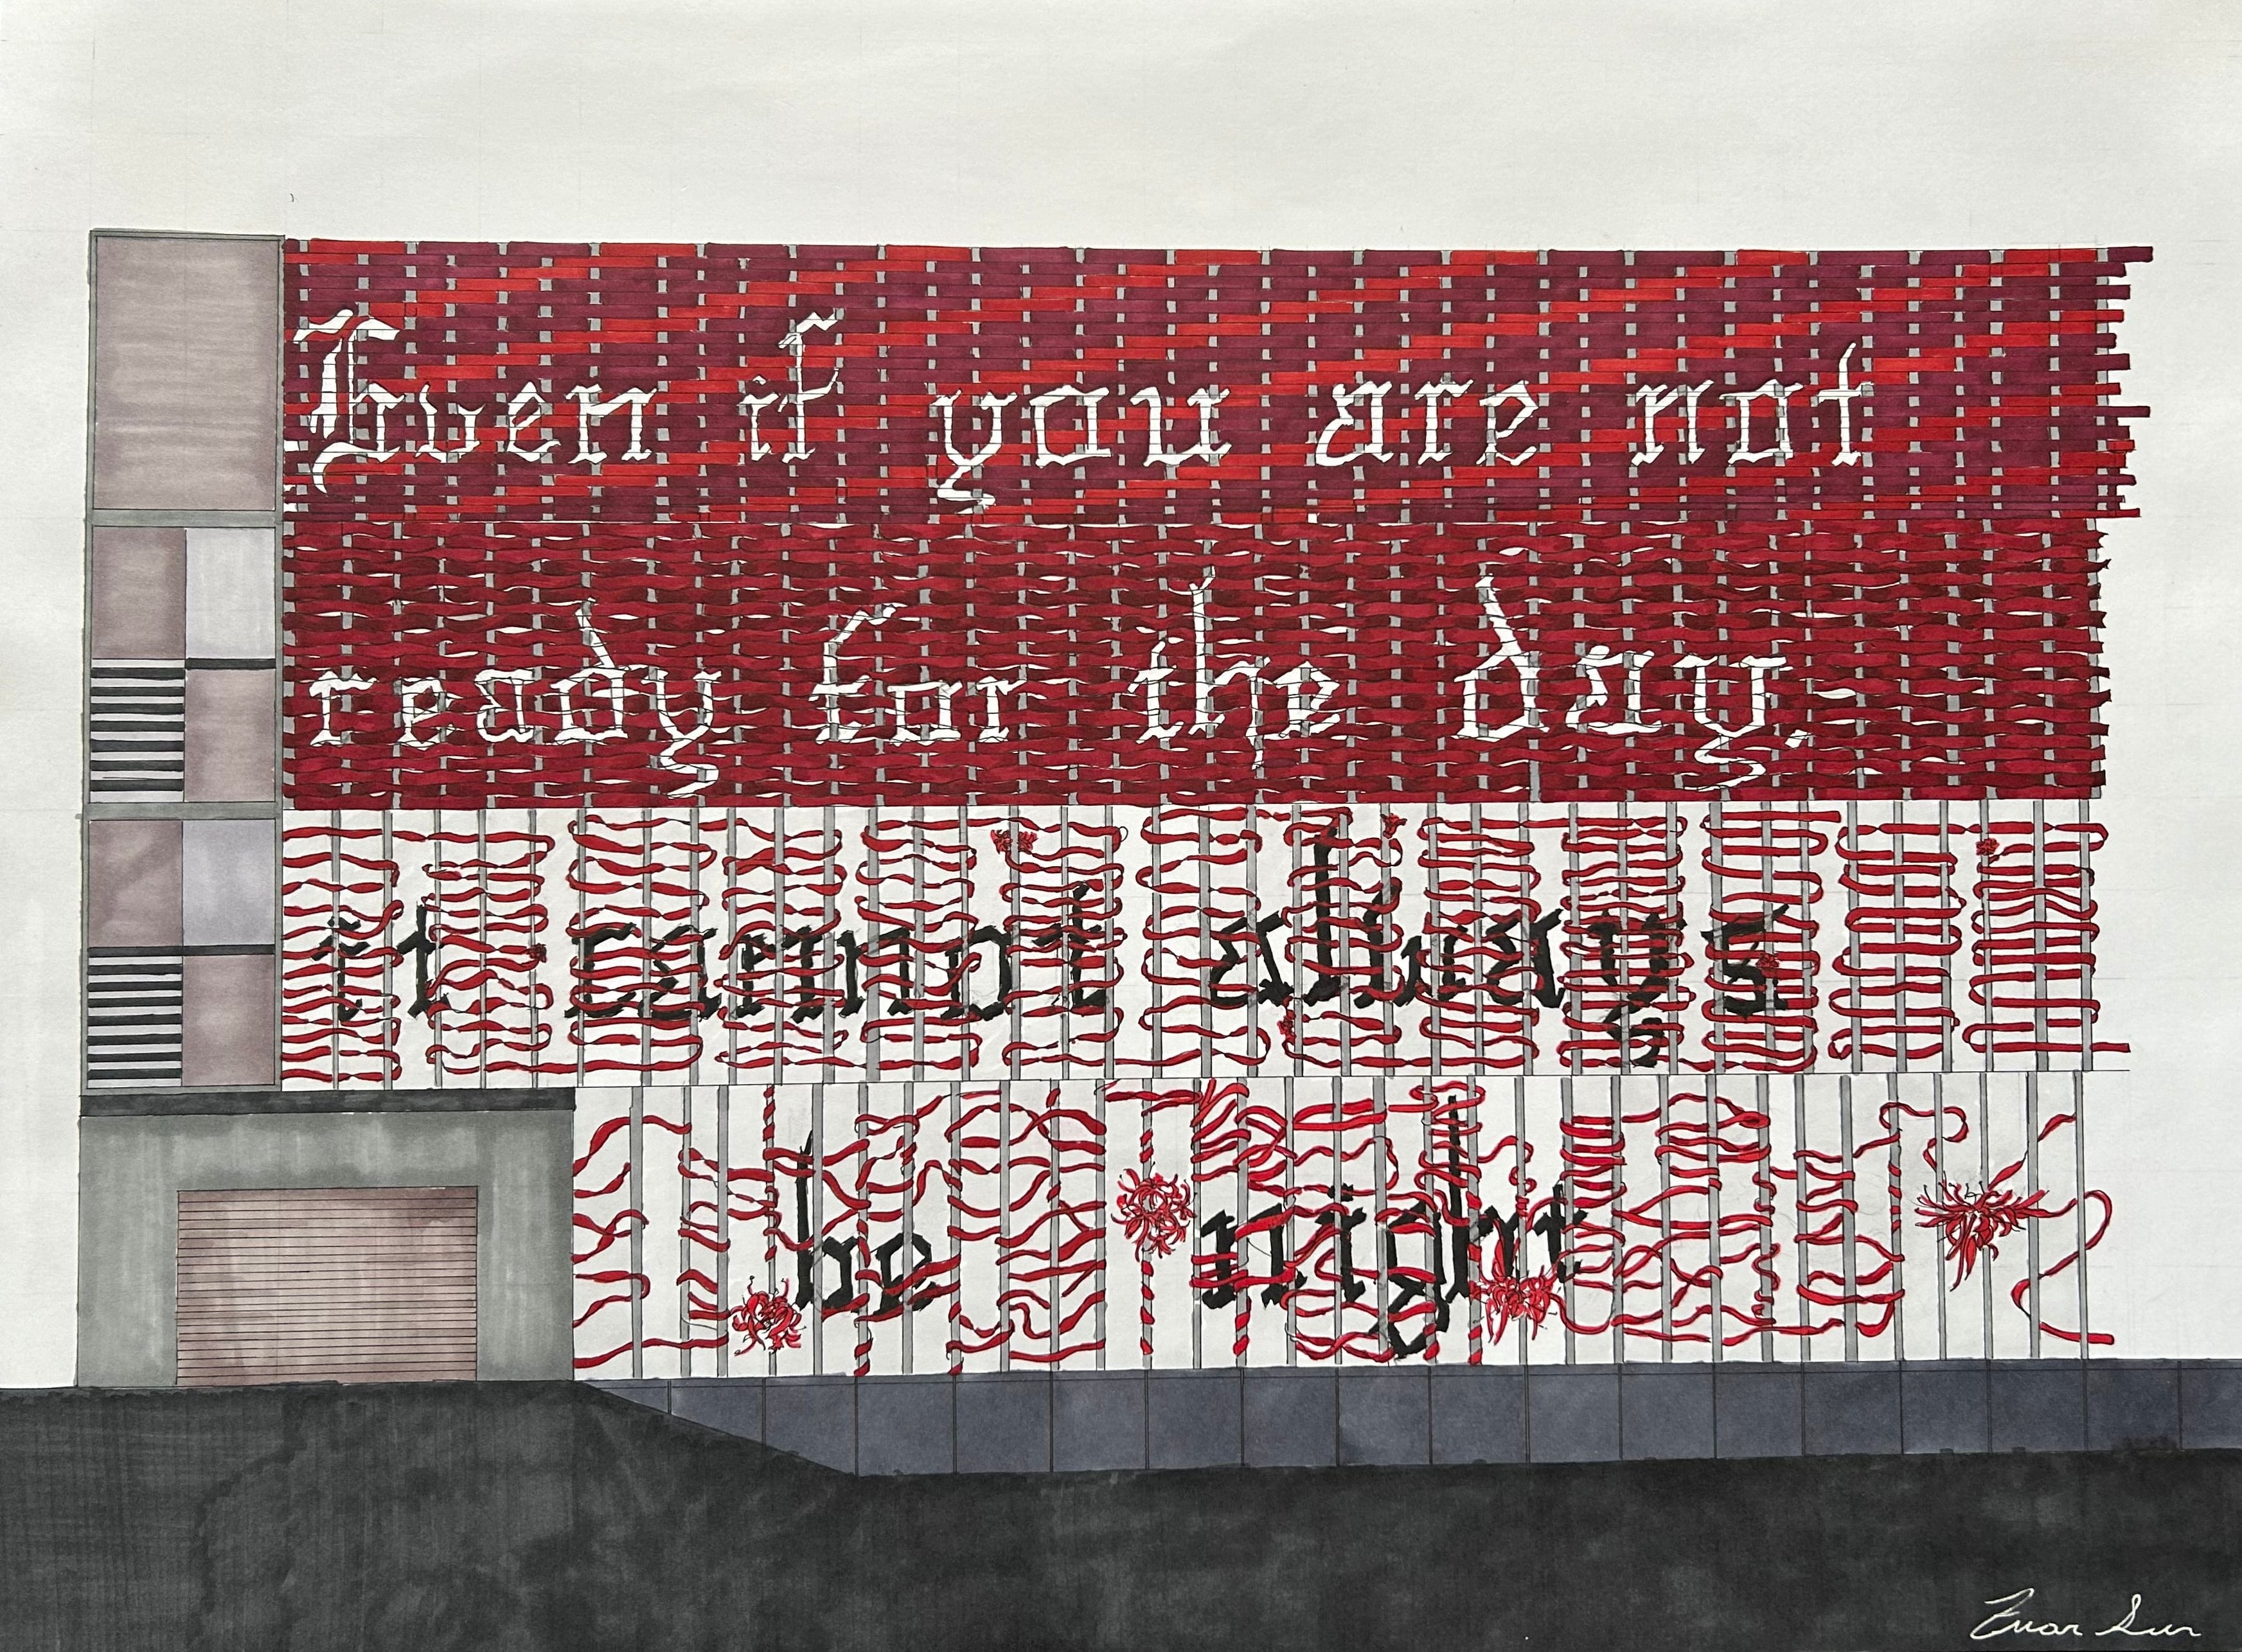 Even if you are not
ready for the day.
it cannot always
be night